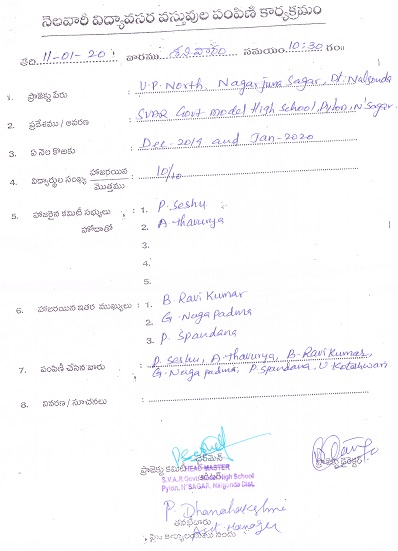 నెలవారీ విద్యావసర వస్తువుల పంపిణీ కార్యక్రమం
తేది 11-01-20 వారము శనివారం సమయం 10:30 గం॥
1. ప్రాజెక్టు పేరు : U.P. North, Nagarjuna Sagar, Dt: Nalgonda
2. ప్రదేశము / ఆవరణ : SVAR Govt model High school, Pylon, N'Sagar.
3. ఏ నెల కొఱకు : Dec-2019 and Jan-2020
4. విద్యార్థుల సంఖ్య హాజరయిన / మొత్తము : 10/10
5. హాజరైన కమిటీ సభ్యులు : 1. P. Seshu
హోదాతో 2. A-thavurya
3.
4.
5.
6. హాజరయిన ఇతర ముఖ్యులు : 1. B. Ravi Kumar
2. G. Naga padma
3. P. Spandana
7. పంపిణీ చేసిన వారు : P. Seshu, A-thavurya, B-Ravi Kumar,
G. Naga padma, P. Spandana. U Koteshwari
8. వివరణ / సూచనలు :
ప్రాజెక్టు కమిటీ ఛైర్మన్
ప్రాజెక్టు డైరెక్టర్
HEAD MASTER
S.V.A.R. Govt. High School
Pylon, N'SAGAR, Nalgonda Dist.
P. Dhanalakshmi
Asst Manager